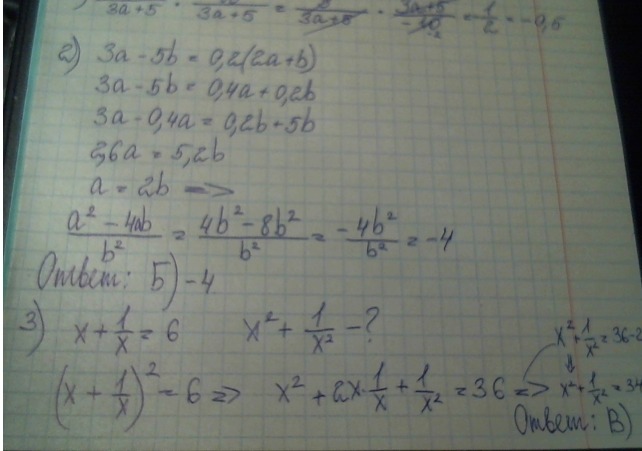 3a+5 · 3a+5 = 3a+5 · 3a+5/-10 = -1/2 = -0,5
2) 3a - 5b = 0,2(2a+b)
3a - 5b = 0,4a + 0,2b
3a - 0,4a = 0,2b + 5b
2,6a = 5,2b
a = 2b =>
(a² - 4ab)/b² = (4b² - 8b²)/b² = (-4b²)/b² = -4
Ответ: Б) -4
3) x + 1/x = 6 x² + 1/x² - ?
(x + 1/x)² = 6 => x² + 2x·1/x + 1/x² = 36 =>
x² + 1/x² = 36-2
⇓
x² + 1/x² = 34
Ответ: В)